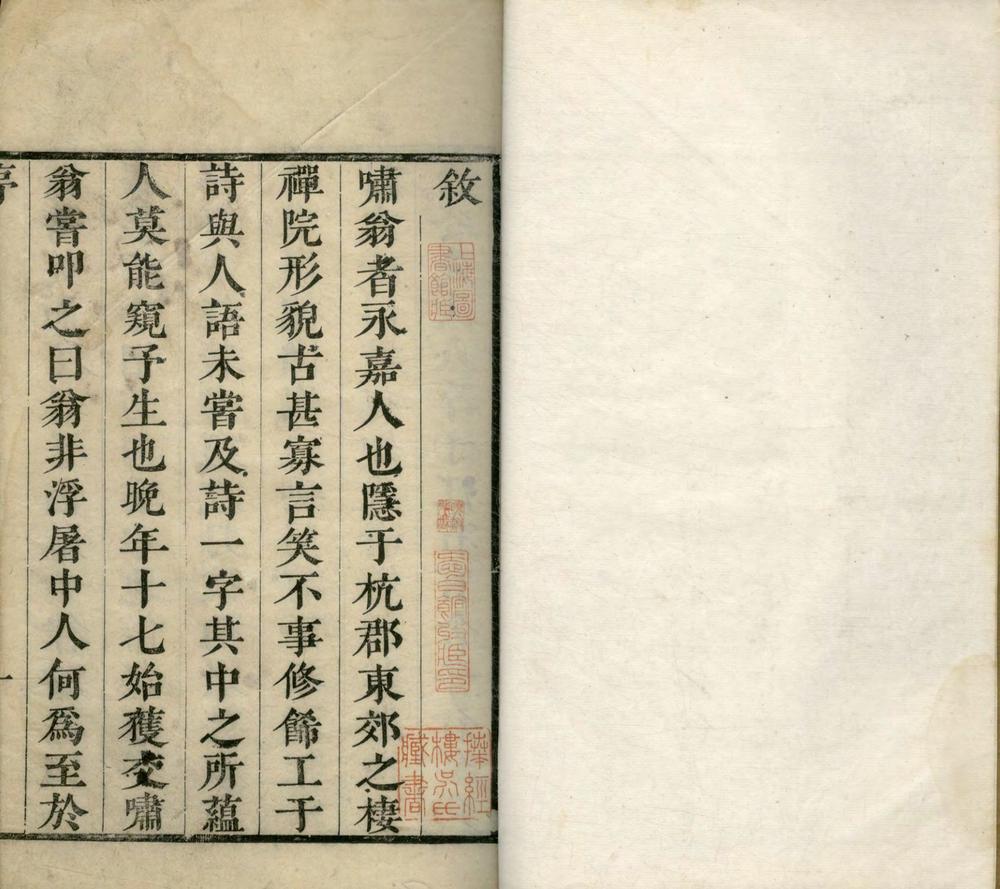 敘
嘯翁者永嘉人也隱于杭郡東郊之棲
禪院形貌古甚寡言笑不事修餙工于
詩與人語未嘗及詩一字其中之所蘊
人莫能窺予生也晚年十七始獲交嘯
翁嘗叩之曰翁非浮屠中人何爲至於
上海圖
書館藏
捧經
樓吳氏
臧書